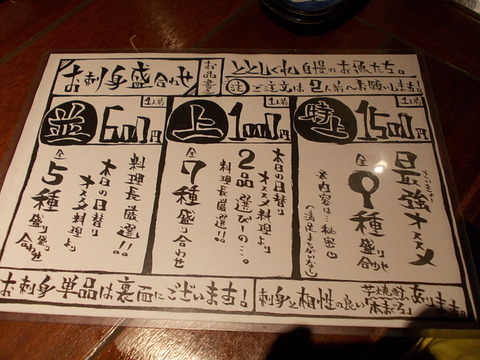 お刺身盛合わせ
お品書
ととしぐれ自慢のお魚たち。
注 ご注文は2人前〜お願いします！
並
1人前
600円
料理長厳選！！
本日の日替り
オススメ料理より
全5種盛り合わせ
上
1人前
1000円
本日の日替り
オススメ料理より
2品選びーの…。
料理長厳選！！
全7種盛り合わせ
時上
1人前
1500円
最強オススメ
全9種盛り合わせ
※内容は…秘密
（満足まちがいなし）
お刺身単品は裏面にございます！
刺身と相性の良い芋焼酎
あります。